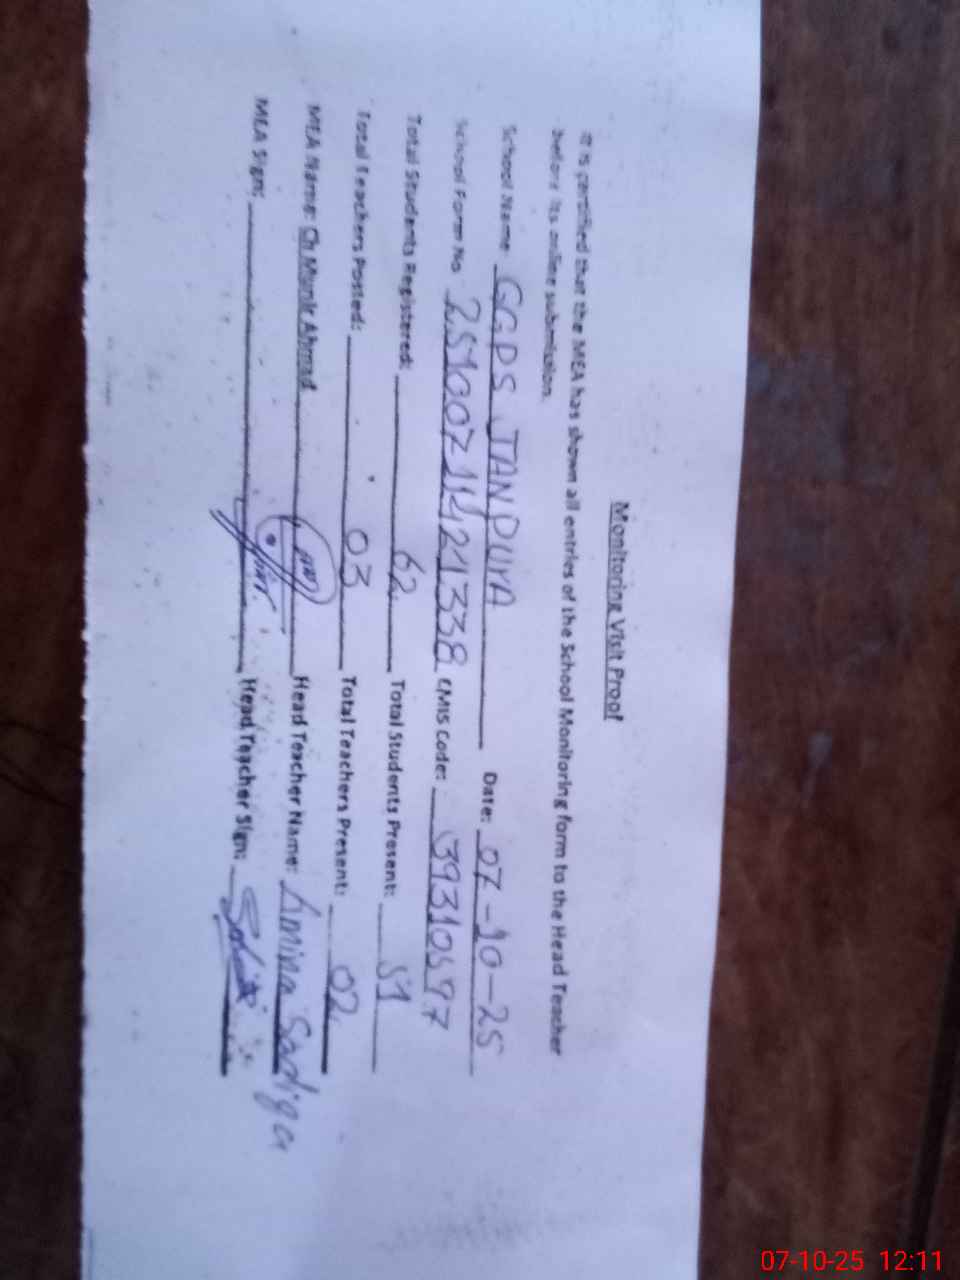 Monitoring Visit Proof
It is certified that the MEA has shown all entries of the School Monitoring form to the Head Teacher
before its online submission.
School Name: GGPS JANPURA Date: 07-10-25
School Form No 25100711421338 EMIS Code: 39310597
Total Students Registered: 62 Total Students Present: 51
Total Teachers Posted: 03 Total Teachers Present: 02
MEA Name: Ch Monir Ahmad Head Teacher Name: Amina Sadiqa
MEA Sign: Head Teacher Sign:
07-10-25 12:11